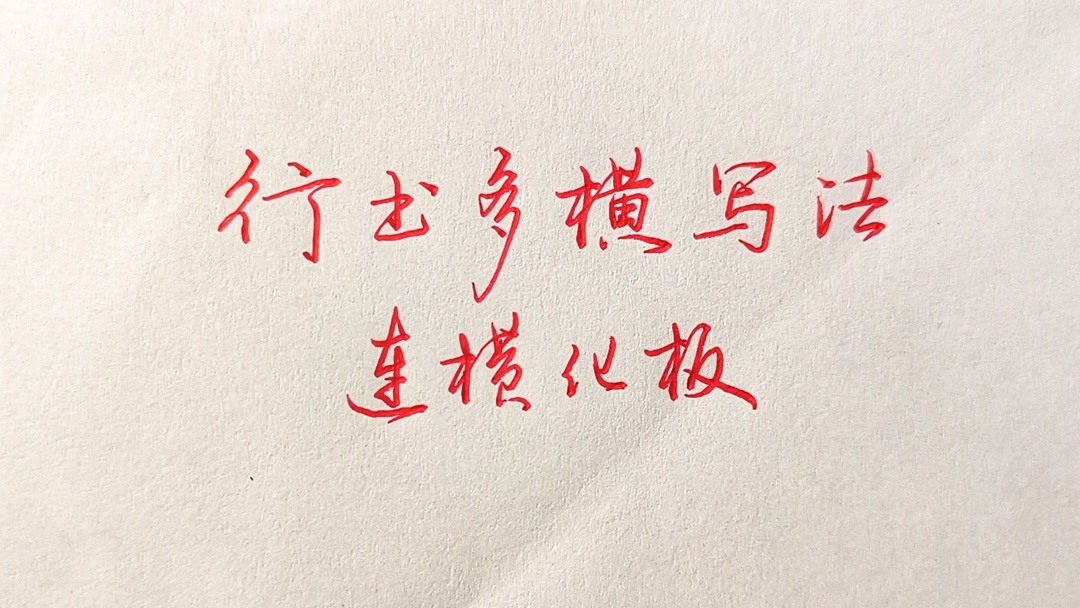 行书多横写法
连横化板